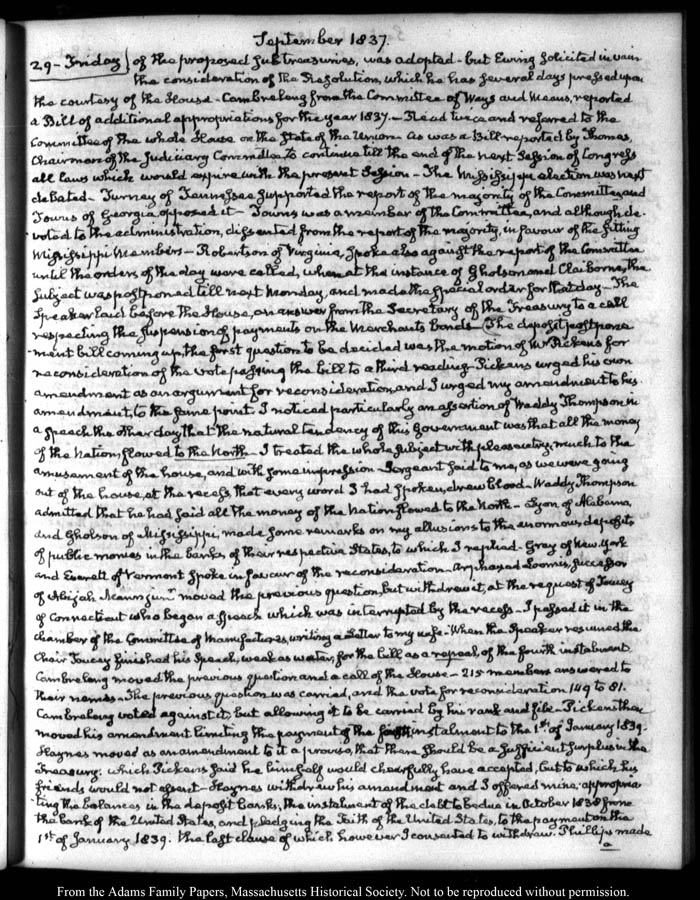 September 1837.
29 - Friday} of the proposed Subtreasuries, was adopted - but Ewing solicited in vain
the consideration of the Resolution, which he has several days pressed upon
the courtesy of the House - Cambreleng from the Committee of Ways and Means, reported
a Bill of additional appropriations for the year 1837. - Read twice and referred to the
Committee of the whole House on the State of the Union - As was a Bill reported by Thomas,
Chairman of the Judiciary Committee, to continue till the end of the next Session of Congress
all laws which would expire with the present Session - The Mississippi election was next
debated - Turney of Tennessee supported the report of the majority of the Committee, and
Towns of Georgia opposed it - Towns was a member of the Committee, and although de-
voted to the administration, dissented from the report of the majority, in favour of the sitting
Mississippi Members - Robertson of Virginia, spoke also against the report of the Committee
until the orders of the day were called, when at the instance of Gholson and Claiborne, the
subject was postponed till next Monday, and made the special order for that day - The
Speaker laid before the House, an answer from the Secretary of the Treasury to a call
respecting the suspension of payments on the Merchants bonds - The deposit postpone-
ment bill coming up, the first question to be decided was the motion of Mr Pickens for
reconsideration of the vote passing the bill to a third reading - Pickens urged his own
amendment as an argument for reconsideration, and I urged my amendment to his
amendment, to the same point. I noticed particularly an assertion of Waddy Thompson in
a speech the other day that the natural tendency of this Government was that all the money
of the Nation, flowed to the North - I treated the whole subject with pleasantry, much to the
amusement of the house, and with some impression - Sergeant said to me, as we were going
out of the house, at the recess, that every word I had spoken, drew blood - Waddy Thompson
admitted that he had said all the money of the Nation flowed to the North - Lyon of Alabama,
and Gholson of Mississippi, made some remarks on my allusions to the enormous deposits
of public monies in the banks of their respective States, to which I replied - Gray of New York
and Everett of Vermont spoke in favour of the reconsideration - Arphaxed Loomis, successor
of Abijah Mann junr moved the previous question, but withdrew it, at the request of Toucey
of Connecticut who began a speech which was interrupted by the recess - I passed it in the
chamber of the Committee of Manufactures, writing a Letter to my wife - When the Speaker resumed the
Chair Toucey finished his speech, weak as water, for the bill as a repeal, of the fourth instalment
Cambreleng moved the previous question and a call of the House - 215 members answered to
their names - The previous question was carried, and the vote for reconsideration 149 to 81.
Cambreleng voted against it, but allowing it to be carried by his rank and file - Pickens then
moved his amendment limiting the payment of the fourth instalment to the 1st of January 1839 -
Haynes moved as an amendment to it a proviso, that there should be a sufficient surplus in the
Treasury. which Pickens said he himself would cheerfully have accepted, but to which his
friends would not assent - Haynes withdrew his amendment and I offered mine, appropria-
ting the balances in the deposit banks, the instalment of the debt to be due in October 1838 from
the bank of the United States, and pledging the Faith of the United States, to the payment on the
1st of January 1839. the last clause of which however I consented to withdraw. Phillips made
a
From the Adams Family Papers, Massachusetts Historical Society. Not to be reproduced without permission.